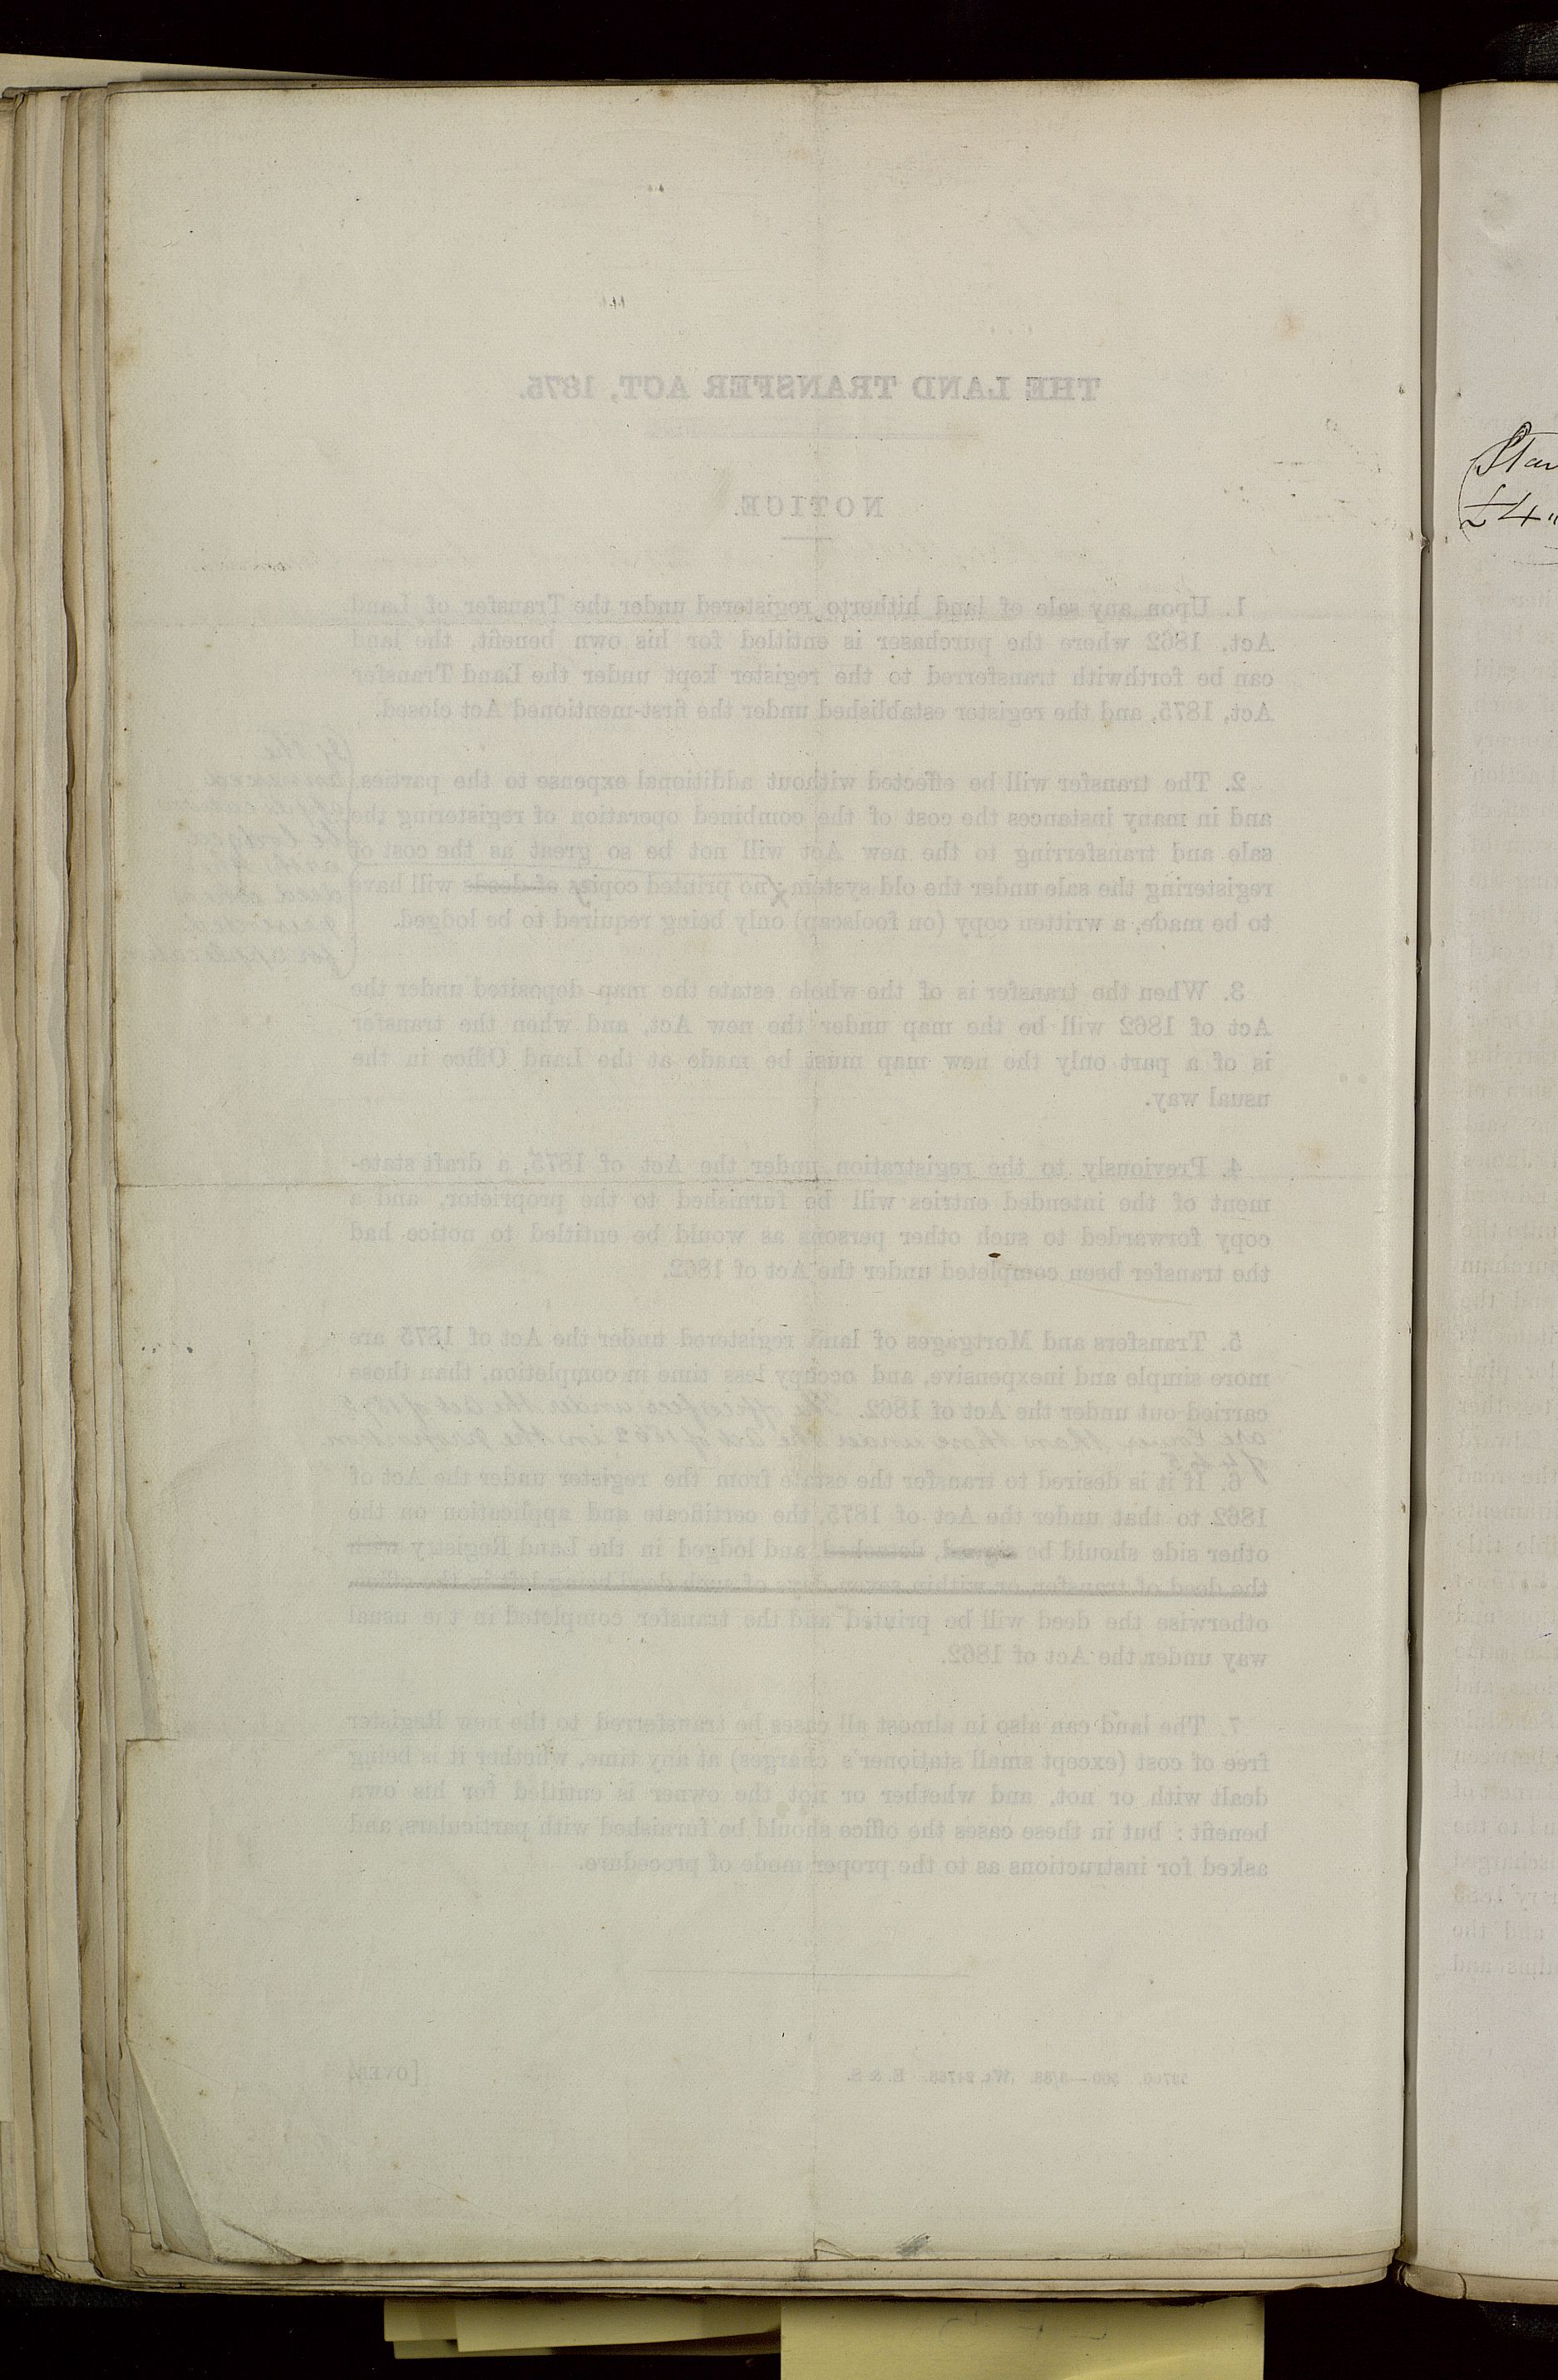 THE LAND TRANSFER ACT, 1875.
NOTICE.
1. Upon any sale of land hitherto registered under the Transfer of Land
Act, 1862 where the purchaser is entitled for his own benefit, the land
can be forthwith transferred to the register kept under the Land Transfer
Act, 1875, and the register established under the first-mentioned Act closed.
2. The transfer will be effected without additional expense to the parties,
and in many instances the cost of the combined operation of registering the
sale and transferring to the new Act will not be so great as the cost of
registering the sale under the old system; no printed copies of deeds will have
to be made, a written copy (on foolscap) only being required to be lodged.
if the
annexed
application
be lodged
with the
deed when
for application
3. When the transfer is of the whole estate the map deposited under the
Act of 1862 will be the map under the new Act, and when the transfer
is of a part only the new map must be made at the Land Office in the
usual way.
4. Previously to the registration under the Act of 1875, a draft state-
ment of the intended entries will be furnished to the proprietor, and a
copy forwarded to such other persons as would be entitled to notice had
the transfer been completed under the Act of 1862.
5. Transfers and Mortgages of land registered under the Act of 1875 are
more simple and inexpensive, and occupy less time in completion, than those
carried out under the Act of 1862. The office fees under the Act of 1875
are lower than those under the Act of 1862 in the proportion
6. If it is desired to transfer the estate from the register under the Act of
1862 to that under the Act of 1875, the certificate and application on the
other side should be signed, detached, and lodged in the Land Registry with
the deed of transfer, or within seven days of such deed being left in the office,
otherwise the deed will be printed and the transfer completed in the usual
way under the Act of 1862.
7. The land can also in almost all cases be transferred to the new Register
free of cost (except small stationer's charges) at any time, whether it is being
dealt with or not, and whether or not the owner is entitled for his own
benefit: but in these cases the office should be furnished with particulars, and
asked for instructions as to the proper mode of procedure.
Wt. 24768. E. & S.
[OVER.
Star
£4"